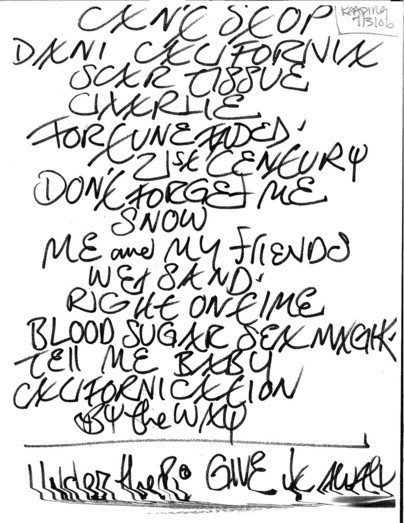 CAN'T STOP
READING
7/3/06
DANI CALIFORNIA
SCAR TISSUE
CHARLIE
FORTUNE FADED.
21st CENTURY
DON'T FORGET ME
SNOW
ME and MY FRIENDS
WET SAND.
RIGHT ON TIME
BLOOD SUGAR SEX MAGIK.
TELL ME BABY
CALIFORNICATION
BY the WAY
Under the B. GIVE it away